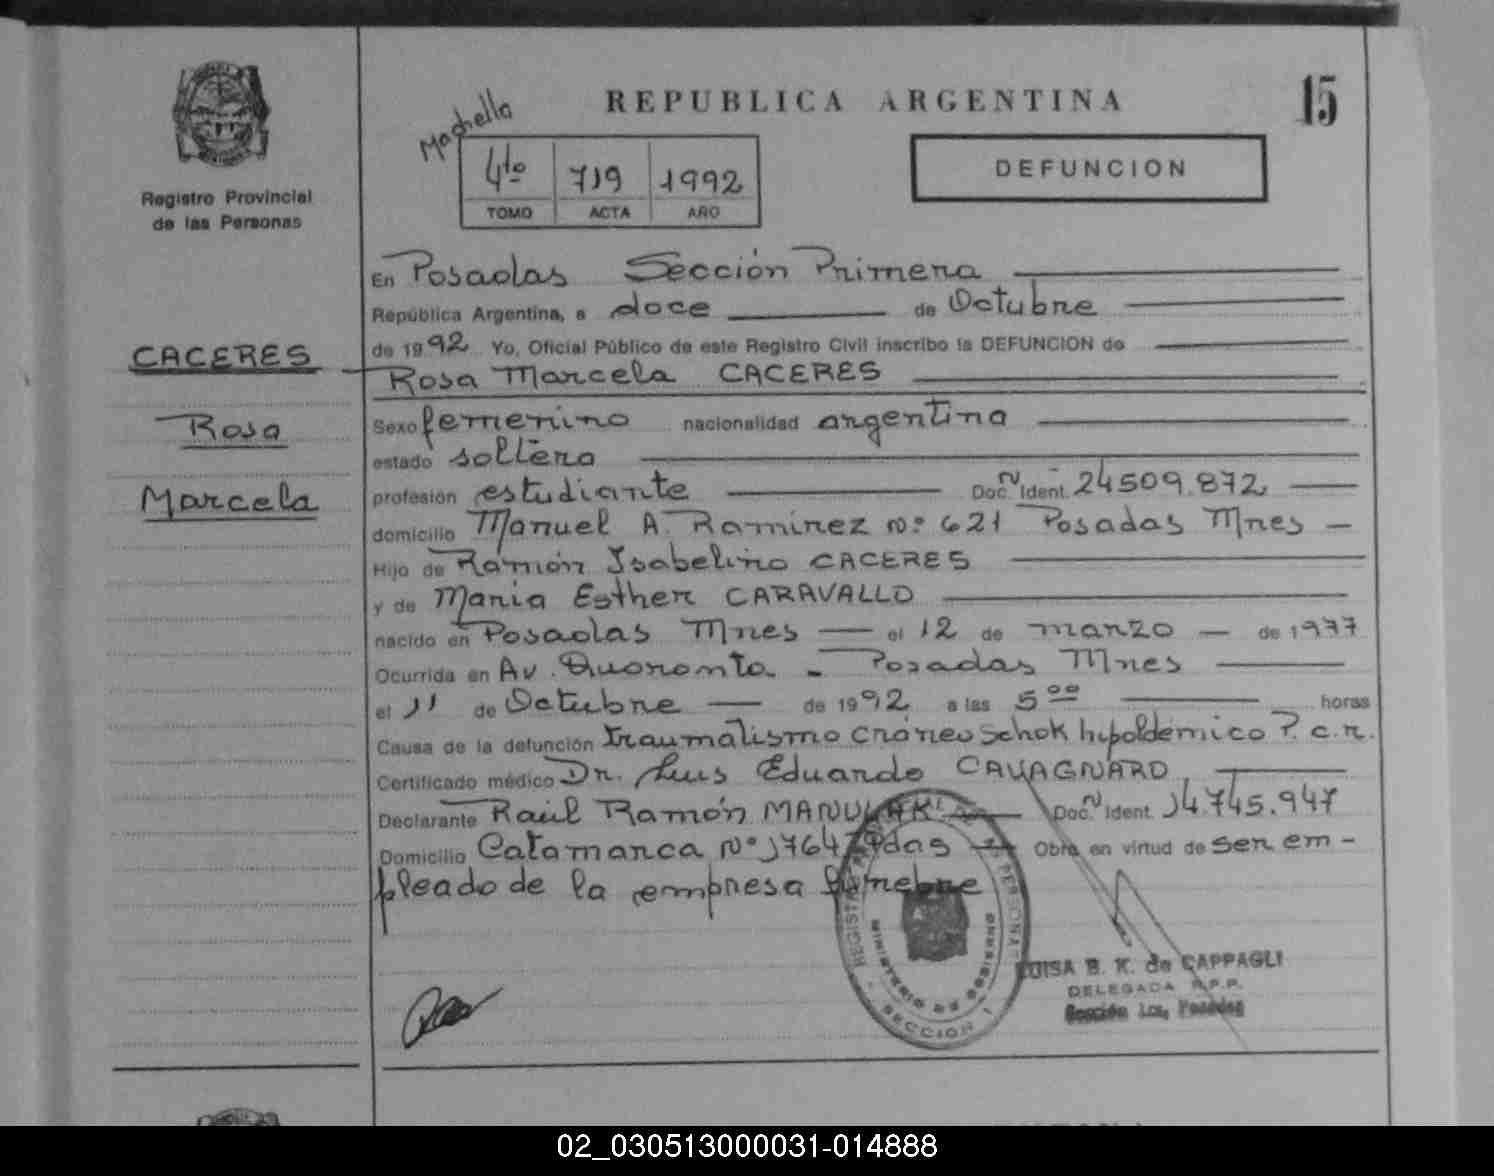 15
REPUBLICA ARGENTINA
Registro Provincial
de las Personas
4to 719 1992
TOMO ACTA AÑO
DEFUNCION
CACERES
Rosa
Marcela
En Posadas Sección Primera
República Argentina, a doce de Octubre
de 1992 Yo, Oficial Público de este Registro Civil inscribo la DEFUNCION de
Rosa Marcela CACERES
Sexo femenino nacionalidad argentina
estado soltera
profesión estudiante Doc. Ident. 24509.872
domicilio Manuel A. Ramirez Nº 621 Posadas Mnes
Hijo de Ramón Isabelino CACERES
y de Maria Esther CARAVALLO
nacido en Posadas Mnes el 12 de marzo de 1977
Ocurrida en Av. Quaranta - Posadas Mnes
el 11 de Octubre de 1992 a las 5 00 horas
Causa de la defunción traumatismo cráneo Schok P.c.r.
Certificado médico Dr. Luis Eduardo CAVAGNARO
Declarante Raúl Ramón Doc. Ident. 14.745.947
Domicilio Catamarca Nº 1764 Pdas Obra en virtud de ser em-
pleado de la empresa fúnebre
MINISTERIO DE GOBIERNO
SECCION 1
LUISA B. K. de CAPPAGLI
DELEGADA R.P.P.
Sección 1ra, Posadas
02_030513000031-014888